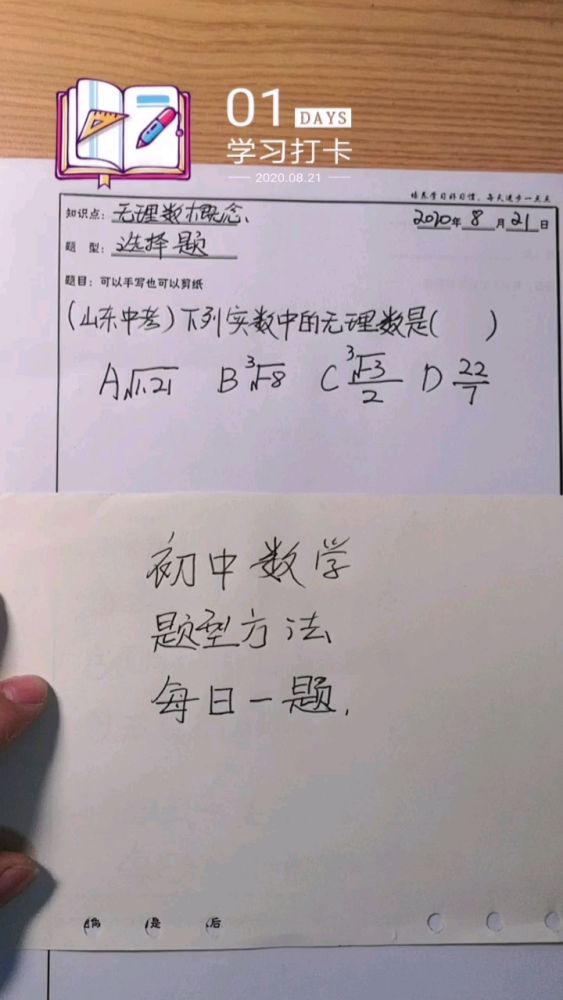 01 DAYS
学习打卡
2020.08.21
培养学习好习惯，每天进步一点点
知识点：无理数概念、 2020年8月21日
题 型：选择题
题目：可以手写也可以剪纸
(山东中考)下列实数中的无理数是( )
A√1.21 B ³√-8 C ³√-3/2 D 22/7
初中数学
题型方法
每日一题.
是 后